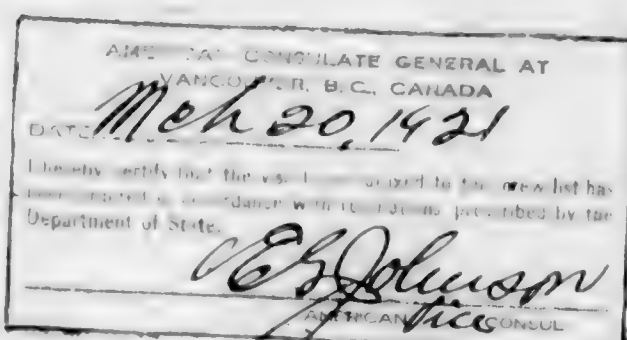 AMERICAN CONSULATE GENERAL AT
VANCOUVER, B.C., CANADA
DATE Mch 20, 1921
I hereby certify that the visa to the crew list has
been in accordance with regulations prescribed by the
Department of State.
EG Johnson
AMERICAN Vice CONSUL